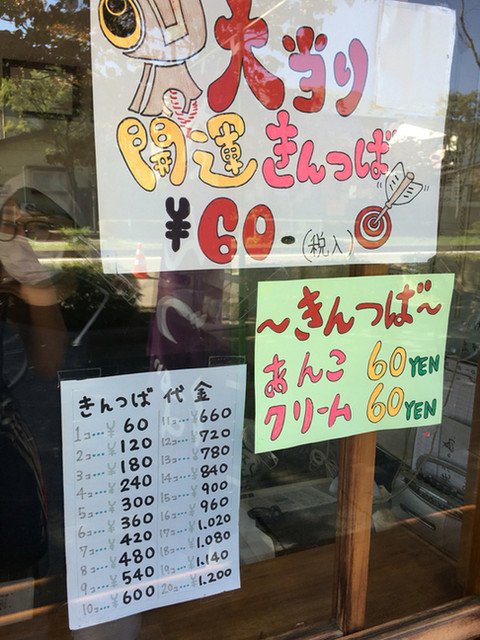 大当り
開運きんつば
¥60-(税入)
～きんつば～
あんこ 60YEN
クリーム 60YEN
きんつば代金
1コ…¥60
2コ…¥120
3コ…¥180
4コ…¥240
5コ…¥300
6コ…¥360
7コ…¥420
8コ…¥480
9コ…¥540
10コ…¥600
11コ…¥660
12コ…¥720
13コ…¥780
14コ…¥840
15コ…¥900
16コ…¥960
17コ…¥1.020
18コ…¥1.080
19コ…¥1.140
20コ…¥1.200